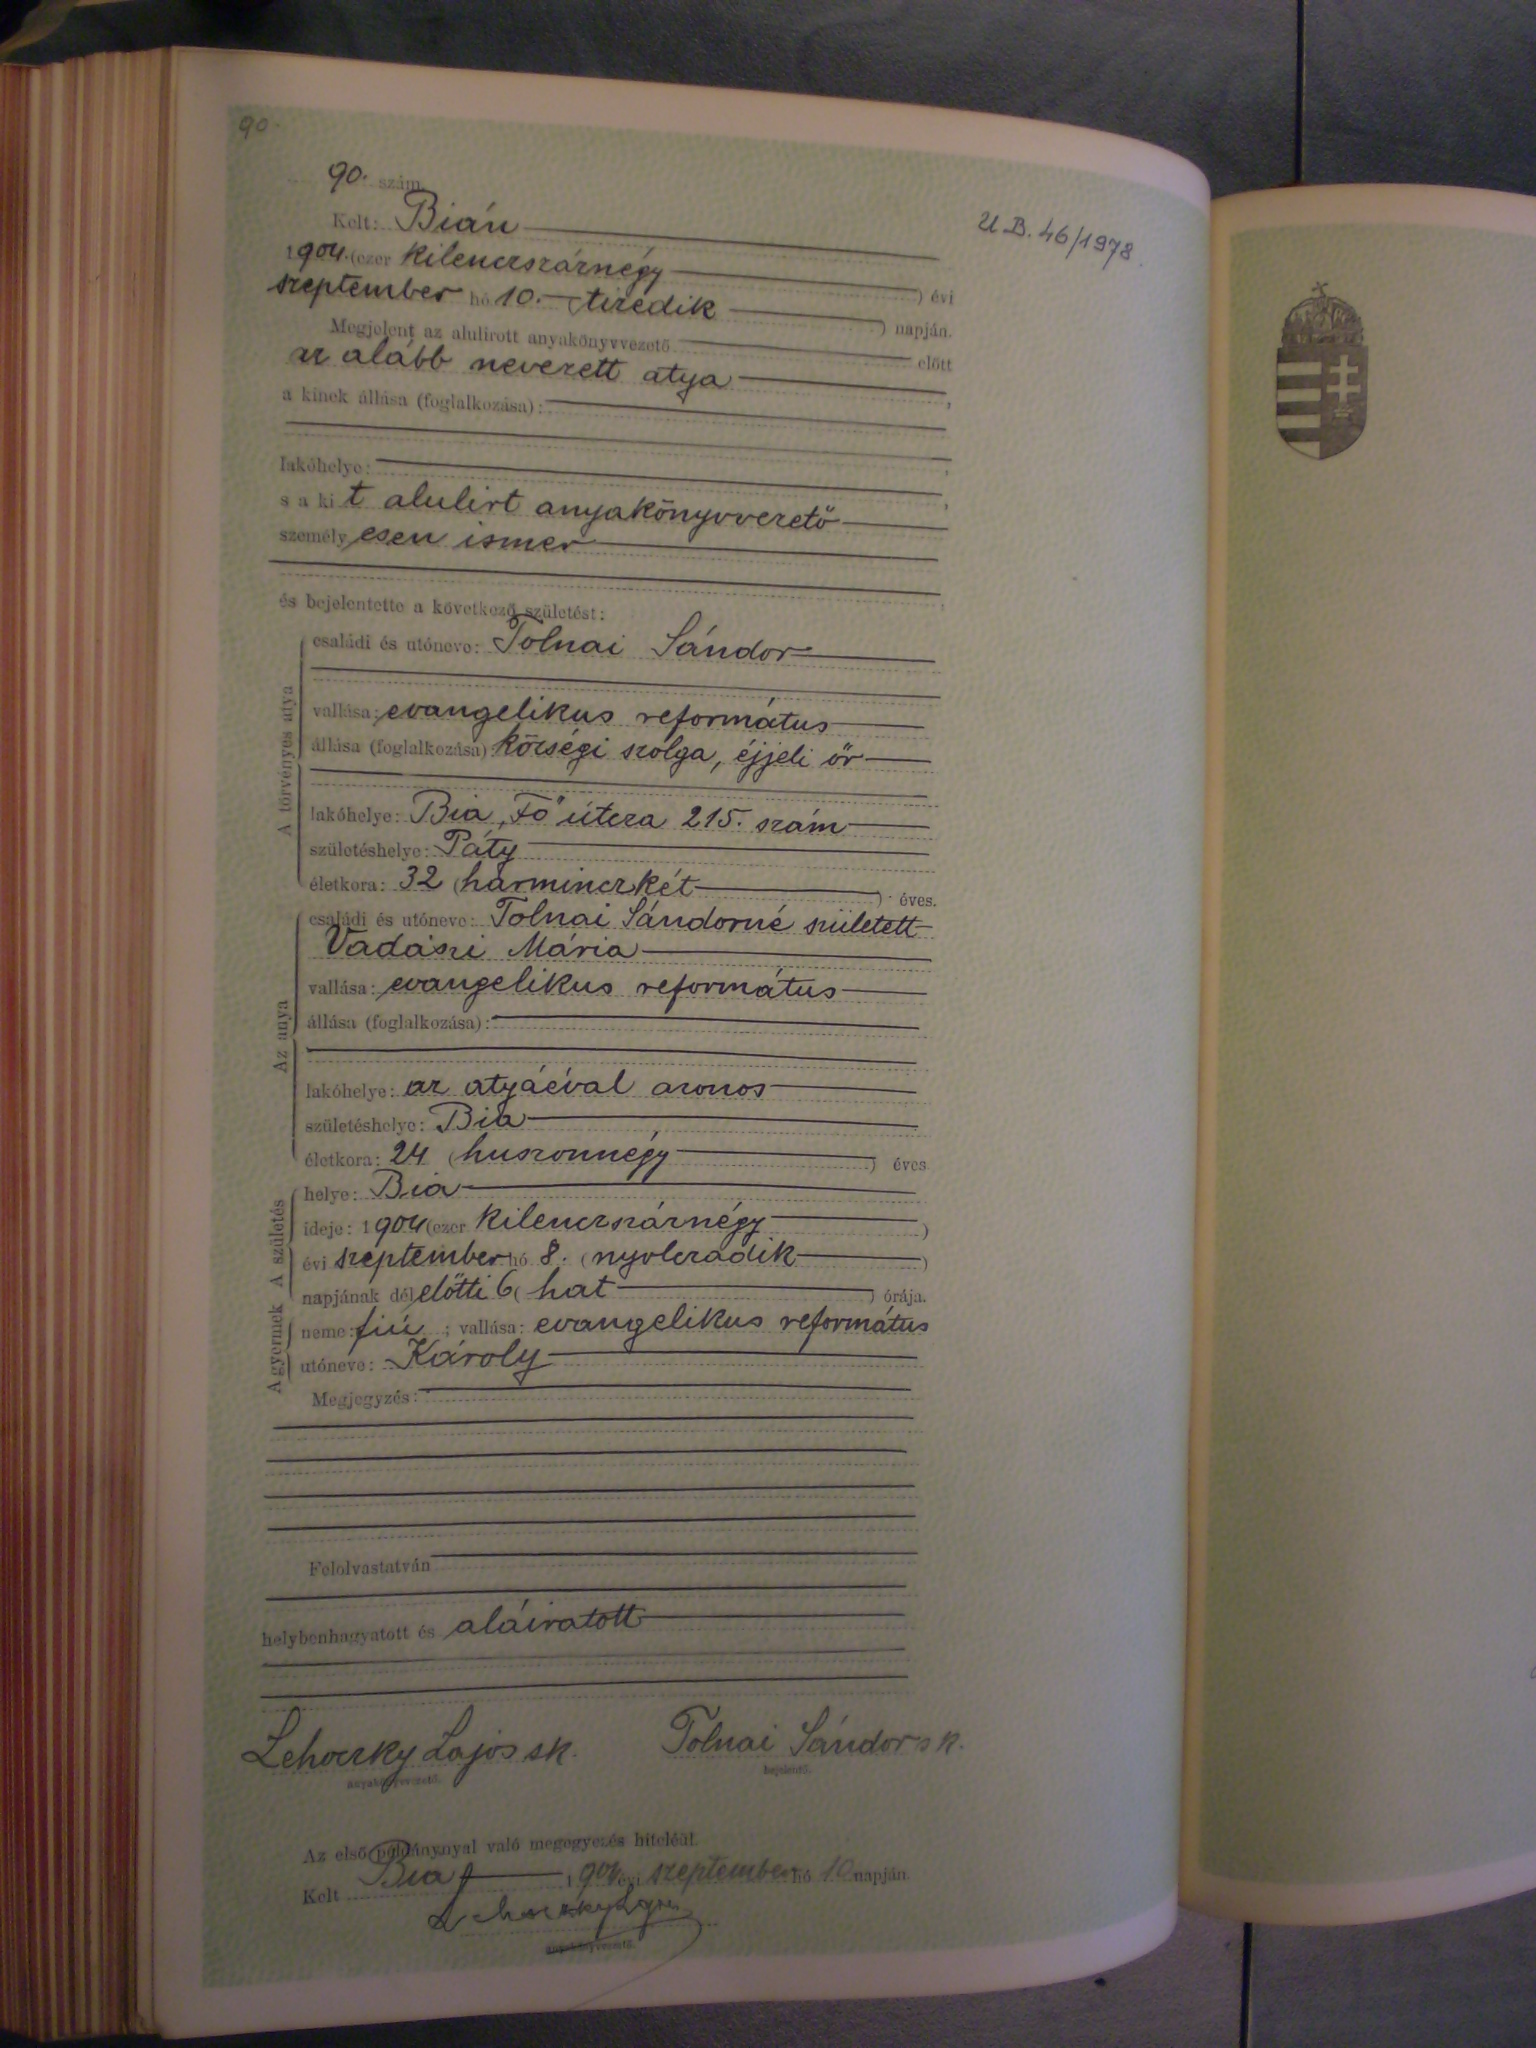 90.
90. szám.
U B. 46/1978.
Kelt: Bián
1904. (ezer kilenczszáznégy ) évi
szeptember hó 10. (tizedik ) napján.
Megjelent az alulirott anyakönyvvezető előtt
az alább nevezett atya ,
a kinek állása (foglalkozása):
lakóhelye: ,
s a ki t alulirt anyakönyvvezető
személy esen ismer
és bejelentette a következő születést:
A törvényes atya
családi és utóneve: Tolnai Sándor
vallása: evangelikus református
állása (foglalkozása): községi szolga, éjjeli őr
lakóhelye: Bia „Fő" útcza 215. szám
születéshelye: Páty
életkora: 32 (harminczkét ) éves.
Az anya
családi és utóneve: Tolnai Sándorné született
Vadászi Mária
vallása: evangelikus református
állása (foglalkozása):
lakóhelye: az atyáéval azonos
születéshelye: Bia
életkora: 24 (huszonnégy ) éves
A születés
helye: Bia
ideje: 1904 (ezer kilenczszáznégy )
évi szeptember hó 8. (nyolczadik )
napjának dél előtti 6 (hat ) órája.
A gyermek
neme: fiú ; vallása: evangelikus református
utóneve: Károly
Megjegyzés:
Felolvastatván
helybenhagyatott és aláiratott
Lehoczky Lajos sk. Tolnai Sándor s k.
anyakönyvvezető. bejelentő.
Az első példánynyal való megegyezés hiteléül.
Kelt Bia 1904 évi szeptember hó 10 napján.
Lehoczky Lajos
anyakönyvvezető.